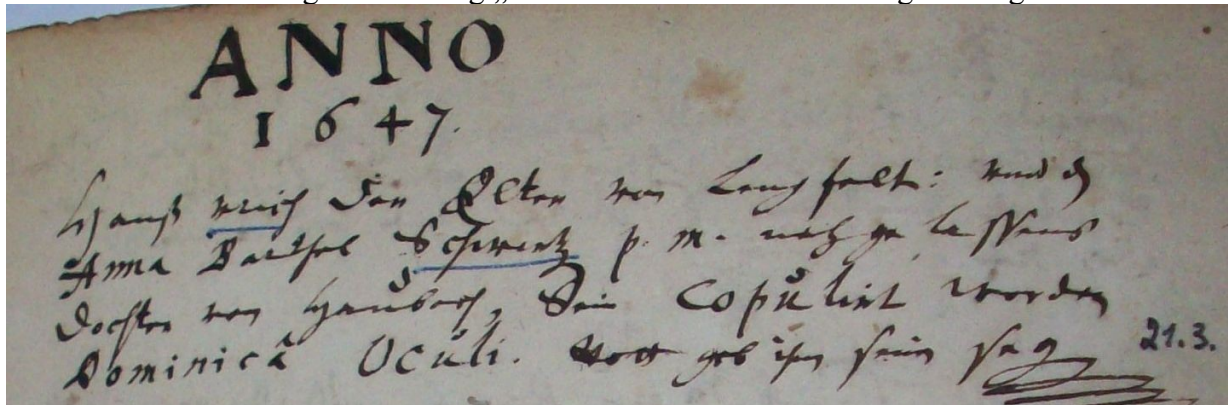 ANNO
1647.
Hanß der Elter von Lengfelt: und
Anna Barthel Schwartz p. m. nachgelassene
Dochter von Haubach, Sein Copulirt worden
Dominicâ Oculi. Gott geb ihn sein seg
21.3.